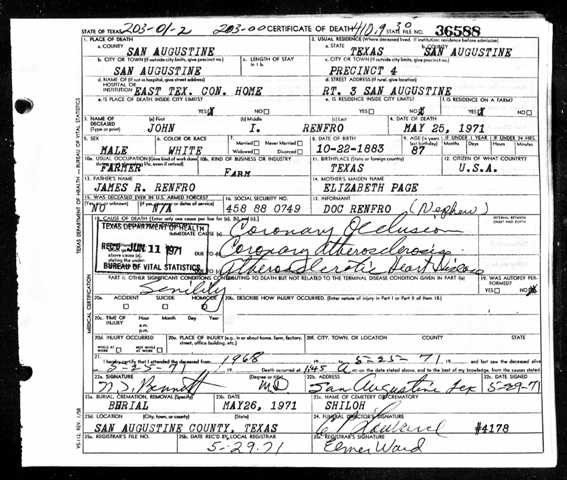 203-01-2 203-00 410.9 30
STATE OF TEXAS CERTIFICATE OF DEATH STATE FILE NO. 36588
1. PLACE OF DEATH 2. USUAL RESIDENCE (Where deceased lived. If institution: residence before admission)
a. COUNTY a. STATE b. COUNTY
SAN AUGUSTINE TEXAS SAN AUGUSTINE
b. CITY OR TOWN (If outside city limits, give precinct no.) c. LENGTH OF STAY c. CITY OR TOWN (If outside city limits, give precinct no.)
SAN AUGUSTINE PRECINCT 4
d. NAME OF (If not in hospital, give street address) d. STREET ADDRESS (If rural, give location)
HOSPITAL OR
INSTITUTION EAST TEX. CON. HOME RT. 3 SAN AUGUSTINE
e. IS PLACE OF DEATH INSIDE CITY LIMITS? e. IS RESIDENCE INSIDE CITY LIMITS? f. IS RESIDENCE ON A FARM?
YES NO YES NO YES NO
3. NAME OF DECEASED (Type or print) (a) First (b) Middle (c) Last 4. DATE OF DEATH
JOHN I. RENFRO MAY 25, 1971
5. SEX 6. COLOR OR RACE 7. Married Never Married Widowed Divorced 8. DATE OF BIRTH 9. AGE IF UNDER 1 YEAR IF UNDER 24 HRS.
MALE WHITE 10-22-1883 87
10a. USUAL OCCUPATION (Give kind of work done 10b. KIND OF BUSINESS OR INDUSTRY 11. BIRTHPLACE (State or foreign country) 12. CITIZEN OF WHAT COUNTRY?
FARMER FARM TEXAS U.S.A.
13. FATHER'S NAME 14. MOTHER'S MAIDEN NAME
JAMES R. RENFRO ELIZABETH PAGE
15. WAS DECEASED EVER IN U.S. ARMED FORCES? 16. SOCIAL SECURITY NO. 17. INFORMANT
NO N/A 458 88 0749 DOC RENFRO (Nephew)
18. CAUSE OF DEATH (Enter only one cause per line for (a), (b), and (c).) INTERVAL BETWEEN
TEXAS DEPARTMENT OF HEALTH
IMMEDIATE CAUSE (a) Coronary Occlusion
REC'D JUN 11 1971 DUE TO Coronary Atherosclerosis
above cause (a)
BUREAU OF VITAL STATISTICS Atherosclerotic Heart Disease
PART II. OTHER SIGNIFICANT CONDITIONS CONTRIBUTING TO DEATH BUT NOT RELATED TO THE TERMINAL DISEASE CONDITION GIVEN IN PART I (a) 19. WAS AUTOPSY PERFORMED?
Senility YES NO
20a. ACCIDENT SUICIDE HOMICIDE 20b. DESCRIBE HOW INJURY OCCURRED. (Enter nature of injury in Part I or Part II of item 18.)
20c. TIME OF INJURY Hour Month Day Year
a.m.
p.m.
20d. INJURY OCCURRED 20e. PLACE OF INJURY (e.g., in or about home, farm, factory, street, office building, etc.) 20f. CITY, TOWN, OR LOCATION COUNTY STATE
WHILE AT WORK NOT WHILE AT WORK
21. I hereby certify that I attended the deceased from 1968 to 5-25-71 and last saw the deceased alive
5-25-71 Death occurred at 1:45 A m. on the date stated above, and to the best of my knowledge, from the causes stated.
22a. SIGNATURE (Degree or title) 22b. ADDRESS 22c. DATE SIGNED
Bennett MD San Augustine Tex 5-29-71
23a. BURIAL, CREMATION, REMOVAL (Specify) 23b. DATE 23c. NAME OF CEMETERY OR CREMATORY
BURIAL MAY26, 1971 SHILOH
23d. LOCATION (City, town, or county) (State) 24. FUNERAL DIRECTOR'S SIGNATURE
SAN AUGUSTINE COUNTY, TEXAS #4178
25a. REGISTRAR'S FILE NO. 25b. DATE REC'D BY LOCAL REGISTRAR 25c. REGISTRAR'S SIGNATURE
5-29-71 Elmer Ward
TEXAS DEPARTMENT OF HEALTH — BUREAU OF VITAL STATISTICS
MEDICAL CERTIFICATION
VS-112, REV. 1/58